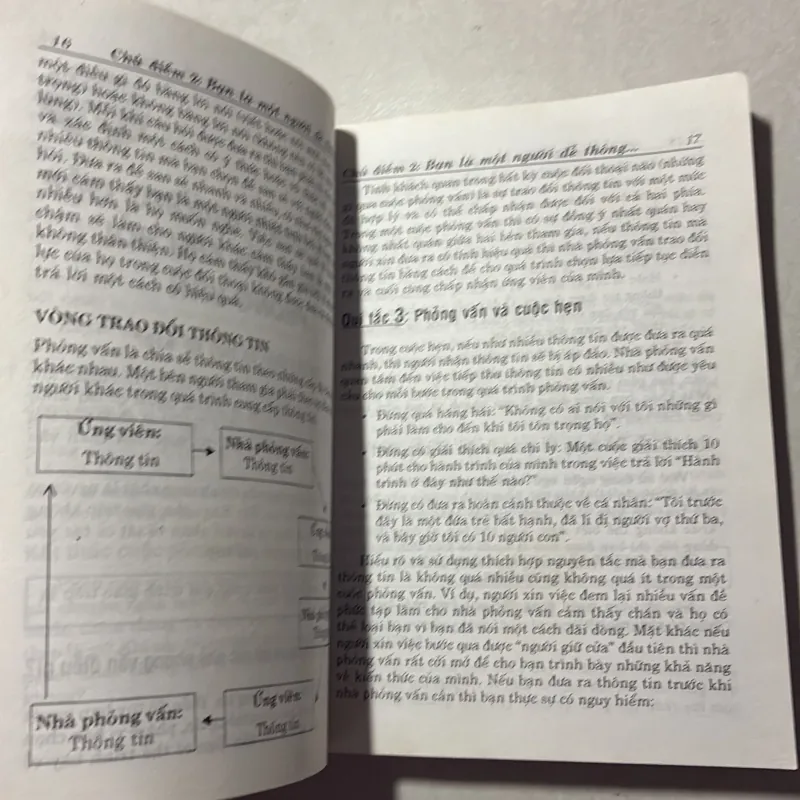 16 Chủ điểm 2: Bạn là một người
một điều gì đó bằng lời nói
trọng) hoặc không bằng lời nói
lùng). Mỗi khi câu hỏi được đưa ra thì bạn phải
và xác định một cách có ý thức hoặc vô thức
nhiều thông tin mà bạn chọn để san sẻ với người
hỏi. Đưa ra để san sẻ nhanh và nhiều,
mới cảm thấy bạn là một người nhiệt tình
nhiều hơn là họ muốn nghe. Việc san sẻ
chậm sẽ làm cho người khác cảm thấy
không thân thiện. Họ cảm thấy khó
lực của họ trong cuộc đối thoại không được
trả lời một cách có hiệu quả.
VÒNG TRAO ĐỔI THÔNG TIN
Phỏng vấn là chia sẻ thông tin theo những
khác nhau. Một bên người tham gia phải
người khác trong quá trình cung cấp thông tin.
Ứng viên:
Thông tin
Nhà phỏng vấn:
Thông tin
Ứng
Thông
Nhà phỏng
Thông
Ứng viên:
Thông tin
Nhà phỏng vấn:
Thông tin
Chủ điểm 2: Bạn là một người dễ thông... 17
Tính khách quan trong bất kỳ cuộc đối thoại nào (những
gì qua cuộc phỏng vấn) là sự trao đổi thông tin với một mức
độ hợp lý và có thể chấp nhận được đối với cả hai phía.
Trong một cuộc phỏng vấn thì có sự đồng ý nhất quán hay
không nhất quán giữa hai bên tham gia, nếu thông tin mà
người xin đưa ra có tính hiệu quả thì nhà phỏng vấn trao đổi
thông tin bằng cách để cho quá trình chọn lựa tiếp tục diễn
ra và cuối cùng chấp nhận ứng viên của mình.
Qui tắc 3: Phỏng vấn và cuộc hẹn
Trong cuộc hẹn, nếu như nhiều thông tin được đưa ra quá
nhanh, thì người nhận thông tin sẽ bị áp đảo. Nhà phỏng vấn
quan tâm đến việc tiếp thu thông tin có nhiều như được yêu
cầu cho mỗi bước trong quá trình phỏng vấn.
• Đừng quá hăng hái: "Không có ai nói với tôi những gì
phải làm cho đến khi tôi tôn trọng họ".
• Đừng có giải thích quá chi ly: Một cuộc giải thích 10
phút cho hành trình của mình trong việc trả lời "Hành
trình ở đây như thế nào?"
• Đừng có đưa ra hoàn cảnh thuộc về cá nhân: "Tôi trước
đây là một đứa trẻ bất hạnh, đã li dị người vợ thứ ba,
và bây giờ tôi có 10 người con".
Hiểu rõ và sử dụng thích hợp nguyên tắc mà bạn đưa ra
thông tin là không quá nhiều cũng không quá ít trong một
cuộc phỏng vấn. Ví dụ, người xin việc đem lại nhiều vấn đề
phức tạp làm cho nhà phỏng vấn cảm thấy chán và họ có
thể loại bạn vì bạn đã nói một cách dài dòng. Mặt khác nếu
người xin việc bước qua được "người giữ cửa" đầu tiên thì nhà
phỏng vấn rất cởi mở để cho bạn trình bày những khả năng
về kiến thức của mình. Nếu bạn đưa ra thông tin trước khi
nhà phỏng vấn cần thì bạn thực sự có nguy hiểm: